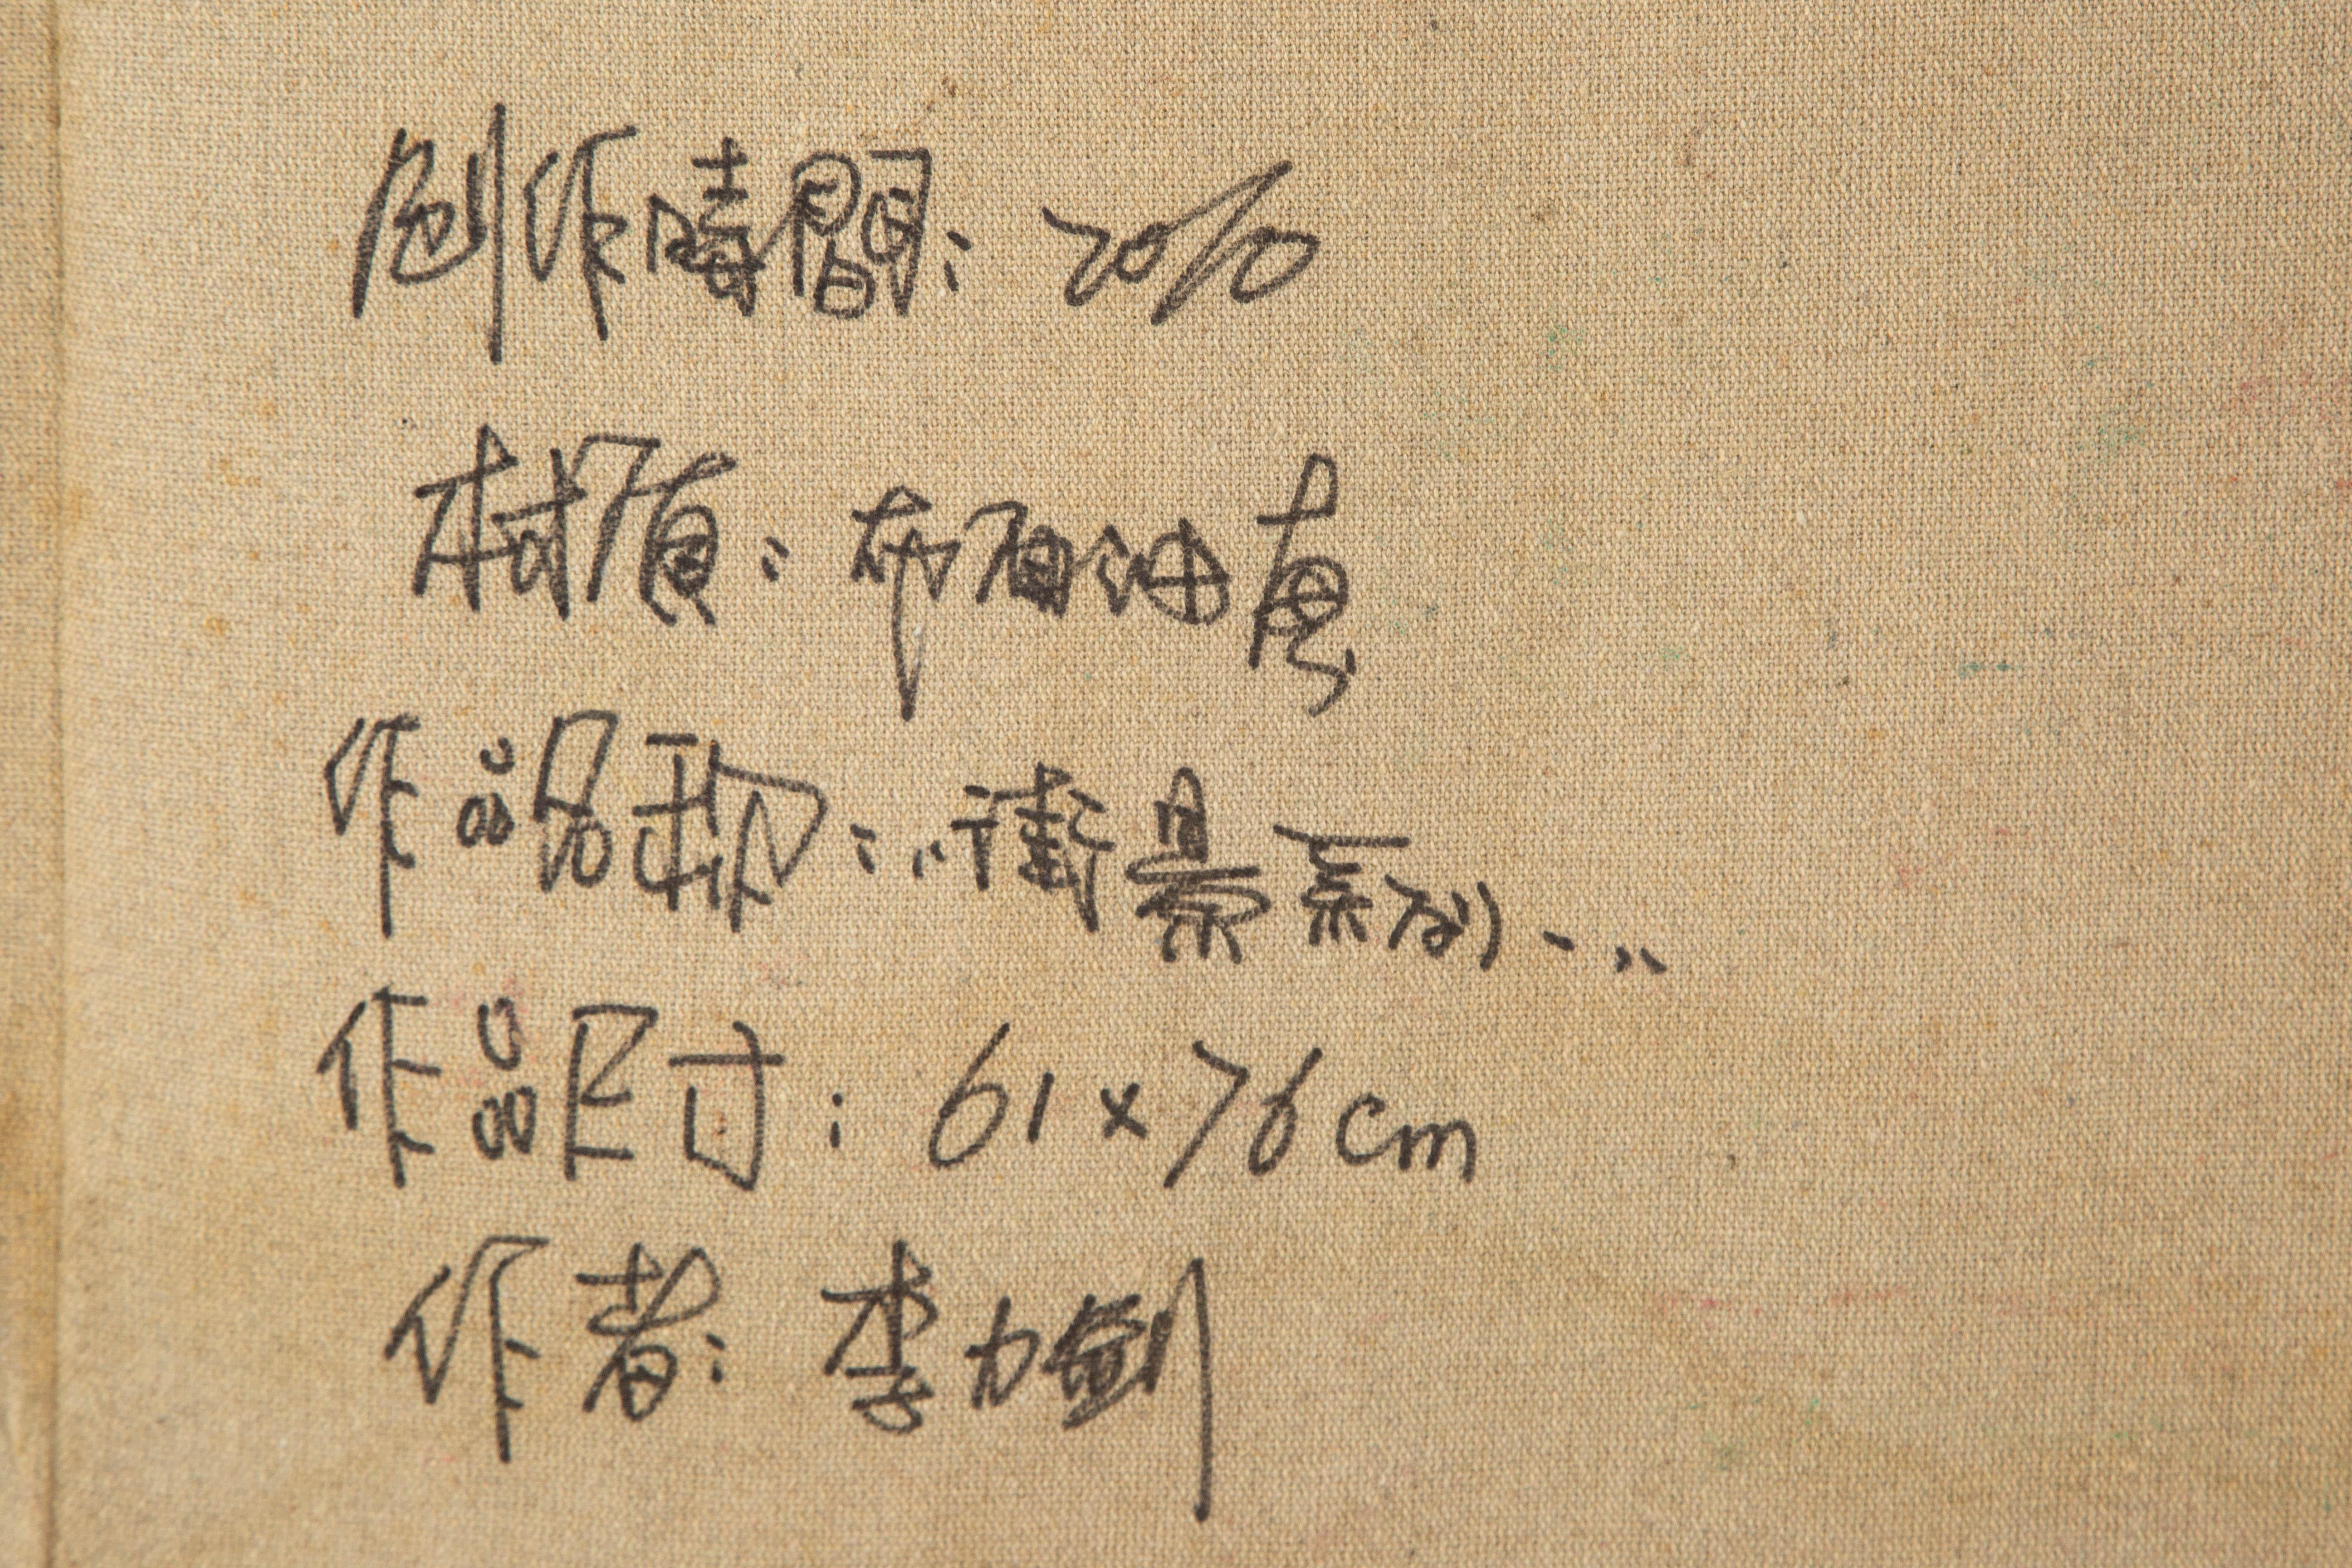 创作時間：2010
材质：布面油畫
作品品歌：“街景系列-…”
作品尺寸：61x76cm
作者：李力劍